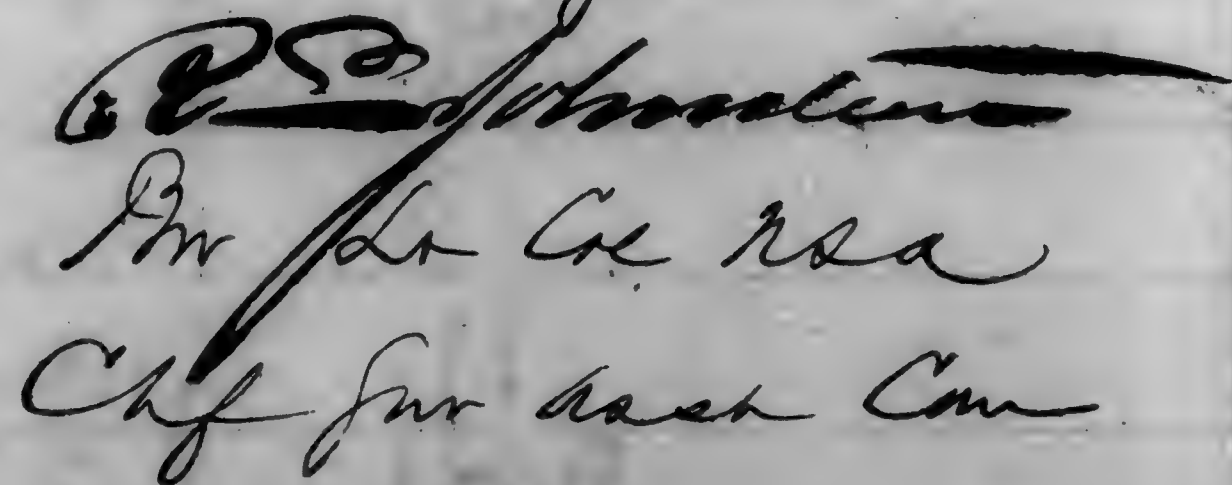 Johnston
Bvt Lt Col USA
Chf Supr Asst Com